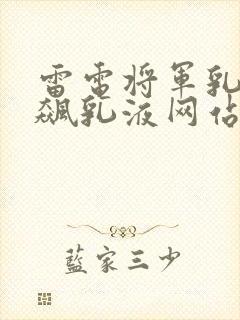 雷电将军乳
飙乳液网站
蓝家三少